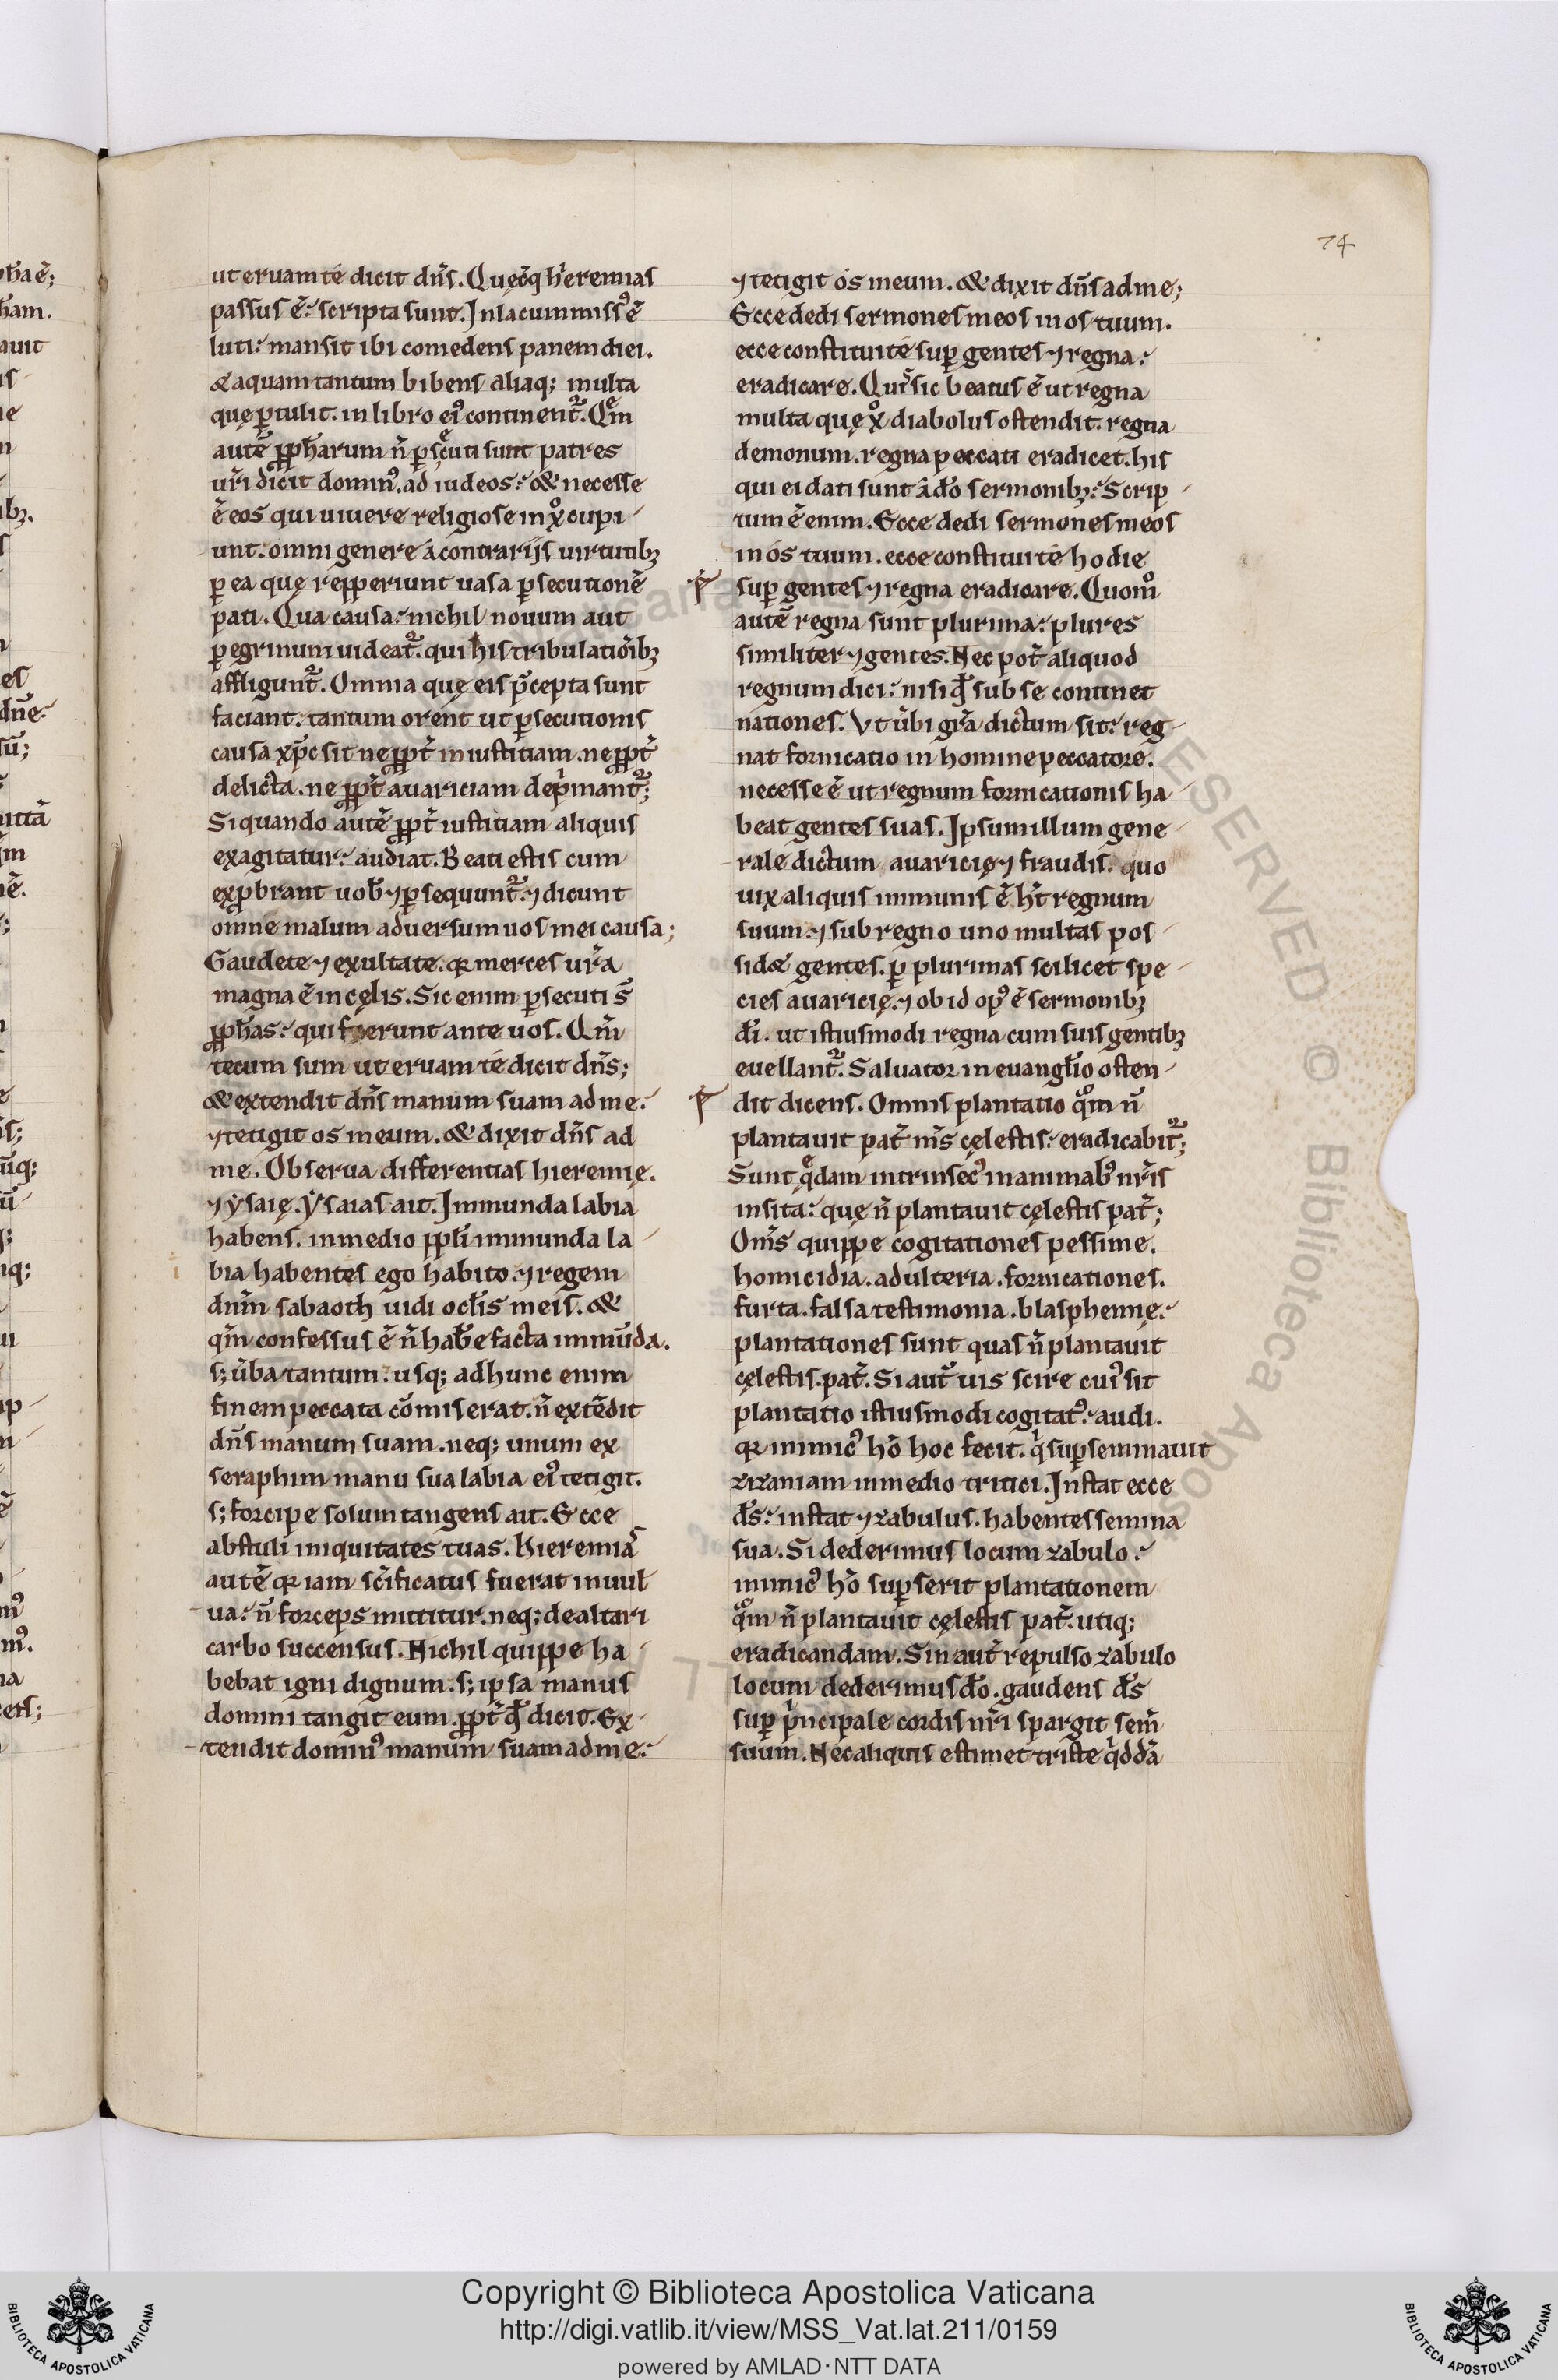 74
ut eruam te dicit dñs. Quęcũq hieremias
passus ẽ: scripta sunt. In lacum missꝰ ẽ
luti: mansit ibi comedens panem diei.
& aquam tantum bibens aliaq; multa
quę ꝑtulit. in libro eiꝰ continent᷑. Quẽm
autẽ ꝓpħarum ñ ꝑsecuti sunt patres
ur̃i dicit dominꝰ. ad iudeos: & necesse
ẽ eos qui uiuere religiose in xp̊o cupi-
unt: omni genere á contrarijs uirtutibꝫ
ꝑ ea quę repperiunt uasa ꝑsecutionẽ
pati. Qua causa: nichil nouum aut
ꝑegrinum uideat᷑. qui his tribulatiõibꝫ
affligunt᷑. Omnia quę eis p̃cepta sunt
faciant. tantum orent ut ꝑsecutionis
causa xp̃c sit ne ꝓpt̃ iniustitiam. ne ꝓpt̃
delicta. ne ꝓpt̃ auariciam dep̃mant᷑;
Si quando autẽ ꝓpt̃ iustitiam aliquis
exagitatur: audiat. Beati estis cum
exꝓbrant uob̃ ⁊ ꝑsequunt᷑. ⁊ dicunt
omne malum aduersum uos mei causa;
Gaudete ⁊ exultate. qr merces ur̃a
magna ẽ in cęlis. Sic enim ꝑsecuti s̃
ꝓpħas: qui fuerunt ante uos. Qm̃
tecum sum ut eruam te dicit dñs;
& extendit dñs manum suam ad me:
⁊ tetigit os meum. & dixit dñs ad
me. Obserua differentias hieremię.
⁊ ẏsaię. ẏsaias ait. Immunda labia
habens. in medio ppl̃i immunda la-
bia habentes ego habito. ⁊ regem
dnm̃ sabaoth uidi ocl̃is meis. &
qm̃ confessus ẽ ñ hab̃e facta immũda.
s; ũba tantum: usq; ad hunc enim
finem peccata cõmiserat. ñ extẽdit
dñs manum suam. neq; unum ex
seraphim manu sua labia eiꝰ tetigit.
s; forcipe solum tangens ait. Ecce
abstuli iniquitates tuas. Hieremias
autẽ qr iam sc̃ificatus fuerat in uul-
ua: ñ forceps mittitur. neq; de altari
carbo succensus. Nichil quippe ha-
bebat igni dignum. s; ipsa manus
domini tangit eum. ꝓpt̃ qd̃ dicit. Ex-
tendit dominꝰ manum suam ad me:
⁊ tetigit ós meum. & dixit dñs ad me;
Ecce dedi sermones meos in os tuum.
ecce constitui té suꝑ gentes ⁊ regna:
eradicare. Quis̃ sic beatus ẽ ut regna
multa quę xp̊o diabolus ostendit. regna
demonum. regna peccati eradicet. his
qui ei dati sunt á dõ sermonibꝫ: Scrip-
tum ẽ enim. Ecce dedi sermones meos
in ós tuum. ecce constitui té hodie
suꝑ gentes ⁊ regna eradicare. Quom̊
autẽ regna sunt plurima: plures
similiter ⁊ gentes. Nec pot̃ aliquod
regnum dici: nisi qd̃ sub se continet
nationes. Vt ũbi gr̃a dictum sit: reg-
nat fornicatio in homine peccatore.
necesse ẽ ut regnum fornicationis ha-
beat gentes suas. Ipsum illum gene-
rale dictum auaricię ⁊ fraudis. quo
uix aliquis immunis ẽ ht̃ regnum
suum. ⁊ sub regno uno multas pos-
sid& gentes. ꝑ plurimas scilicet spe-
cies auaricię. ⁊ ob id opꝰ ẽ sermonibꝫ
dĩ. ut istiusmodi regna cum suis gentibꝫ
euellant᷑. Saluator in euangl̃io osten-
dit dicens. Omnis plantatio q̊m ñ
plantauit pat̃ mš cęlestis: eradicabit᷑;
Sunt quędam intrinsecꝰ in animabꝰ nr̃is
insita: quę ñ plantauit cęlestis pat̃;
Om̃s quippe cogitationes pessime.
homicidia. adulteria. fornicationes.
furta. falsa testimonia. blasphemię:
plantationes sunt quas ñ plantauit
cęlestis. pat̃. Si aut̃ uis scire cuiꝰ sit
plantatio istiusmodi cogitatꝰ: audi.
qr inimicꝰ hõ hoc fecit. q̃ suꝑseminauit
zizaniam in medio tritici. Instat ecce
dš: instat ⁊ zabulus. habentes semina
sua. Si dederimus locum zabulo:
inimicꝰ hõ suꝑserit plantationem
q̊m ñ plantauit cęlestis pat̃. utiq;
eradicandam. Sin aut̃ repulso zabulo
locum dederimus dõ. gaudens dš
suꝑ p̃ncipale cordis nr̃i spargit sem̃
suum. Nec aliquis estimet triste q̃d dã
Copyright © Biblioteca Apostolica Vaticana
http://digi.vatlib.it/view/MSS_Vat.lat.211/0159
powered by AMLAD·NTT DATA